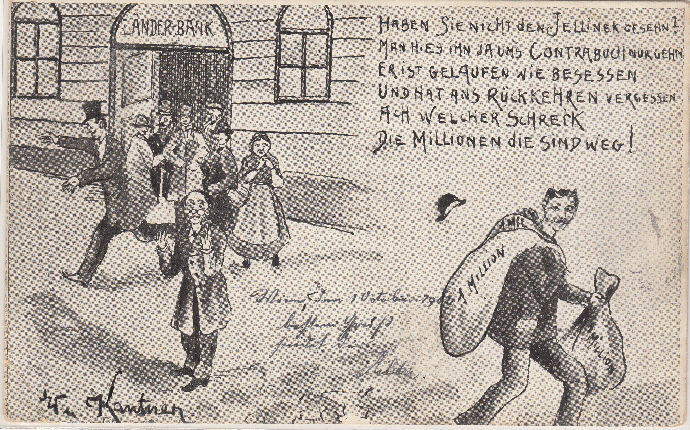 LÄNDER-BANK
HABEN SIE NICHT DEN JELLINEK GESEHN?
MAN HIES IHN JA UMS CONTRABUCH NUR GEHN
ER IST GELAUFEN WIE BESESSEN
UND HAT ANS RÜCKKEHREN VERGESSEN
ACH WELCHER SCHRECK
DIE MILLIONEN DIE SIND WEG!
1 MILLION
MILLION
Wien, den 1 October
besten Gruß